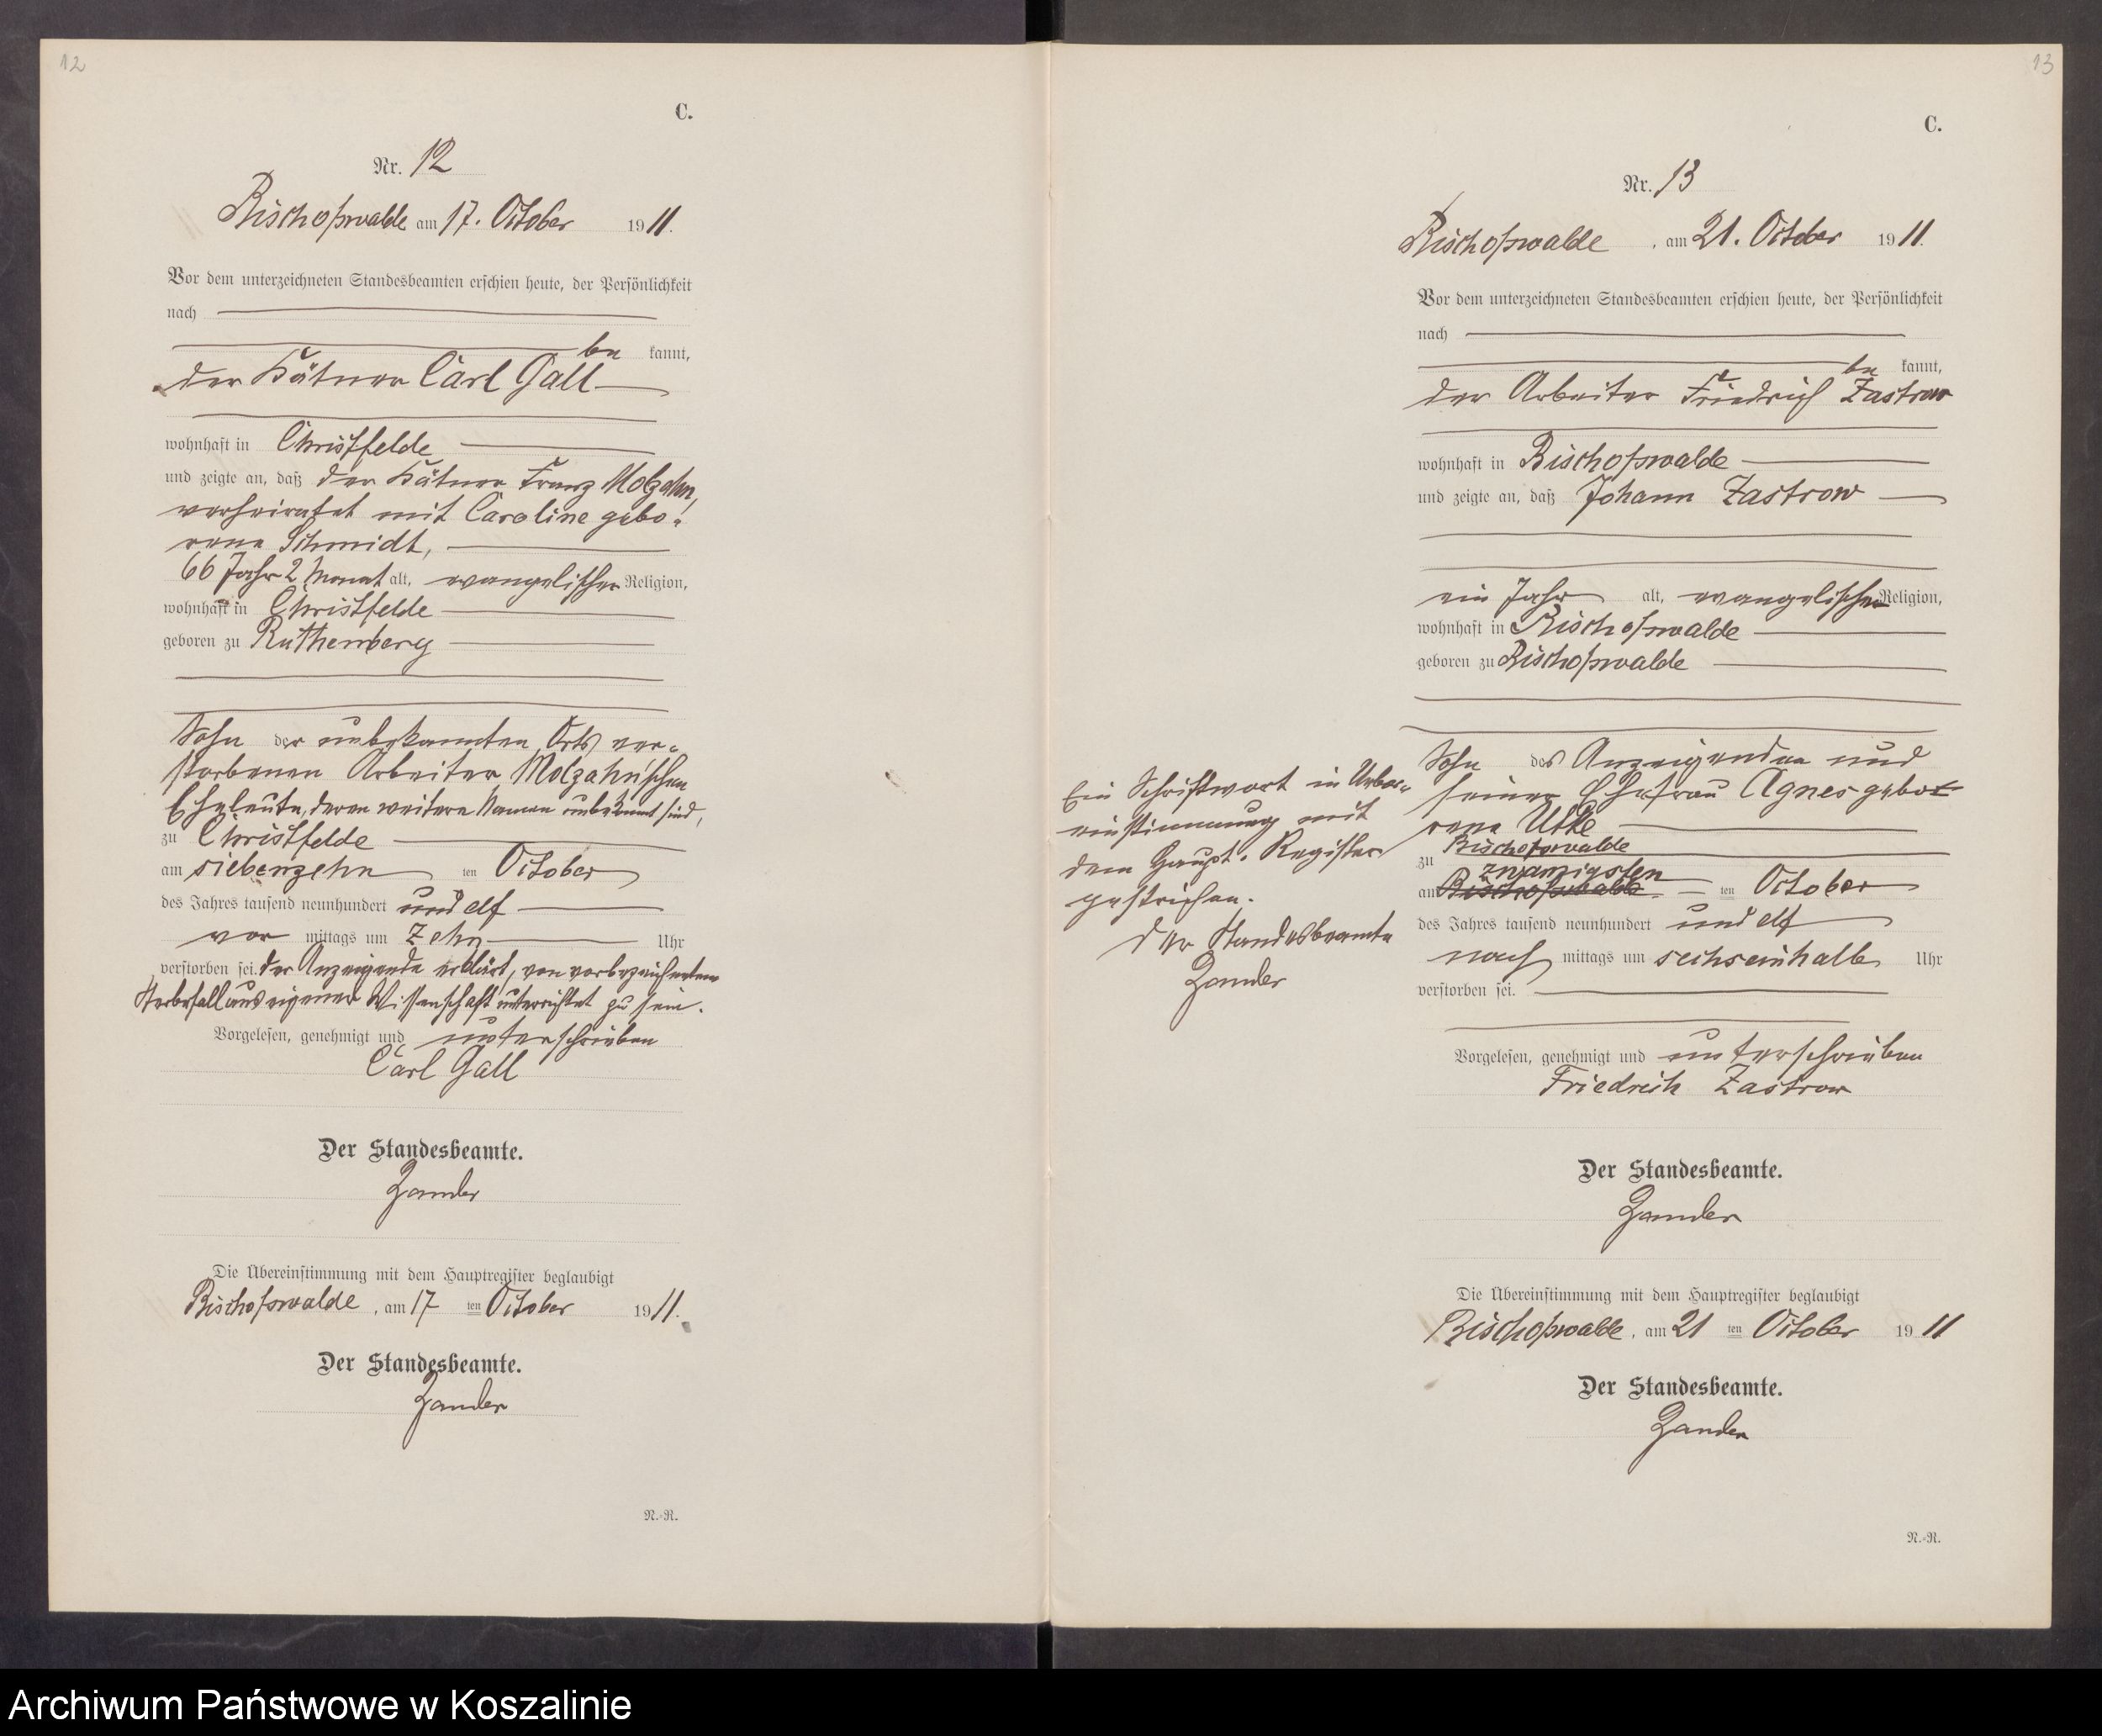 12
C.
Nr. 12
Bischofswalde am 17. October 1911.
Vor dem unterzeichneten Standesbeamten erschien heute, der Persönlichkeit
nach
be kannt,
der Kätner Carl Gall
wohnhaft in Christfelde
und zeigte an, daß der Kätner Franz Molzahn,
verheiratet mit Caroline gebo-
rene Schmidt,
66 Jahr 2 Monat alt, evangelischer Religion,
wohnhaft in Christfelde
geboren zu Ruthenberg
Sohn der unbekannten Orts ver-
storbenen Arbeiter Molzahn'schen
Eheleute, deren weitere Namen unbekannt sind,
zu Christfelde
am siebenzehn ten October
des Jahres tausend neunhundert und elf
vor mittags um zehn Uhr
verstorben sei. Der Anzeigende erklärt, von vorbezeichnetem
Sterbefall aus eigener Wissenschaft unterrichtet zu sein.
Vorgelesen, genehmigt und unterschrieben
Carl Gall
Der Standesbeamte.
Zander
Die Übereinstimmung mit dem Hauptregister beglaubigt
Bischofswalde, am 17 ten October 1911.
Der Standesbeamte.
Zander
N.-R.
13
C.
Nr. 13
Bischofswalde, am 21. October 1911.
Vor dem unterzeichneten Standesbeamten erschien heute, der Persönlichkeit
nach
be kannt,
der Arbeiter Friedrich Zastrow
wohnhaft in Bischofswalde
und zeigte an, daß Johann Zastrow
ein Jahr alt, evangelischer Religion,
wohnhaft in Bischofswalde
geboren zu Bischofswalde
Sohn des Anzeigenden und
seiner Ehefrau Agnes gebo-
rene Utke
zu Bischofswalde
zwanzigsten
am Bischofswalde ten October
des Jahres tausend neunhundert und elf
nach mittags um sechseinhalb Uhr
verstorben sei.
Vorgelesen, genehmigt und unterschrieben
Friedrich Zastrow
Der Standesbeamte.
Zander
Die Übereinstimmung mit dem Hauptregister beglaubigt
Bischofswalde, am 21 ten October 1911
Der Standesbeamte.
Zander
N.-R.
Ein Schriftwort in Ueber-
einstimmung mit
dem Haupt-Register
gestrichen.
Der Standesbeamte
Zander
Archiwum Państwowe w Koszalinie